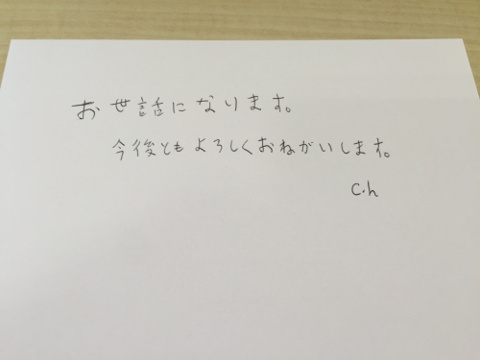 お世話になります。
今後ともよろしくおねがいします。
C.h